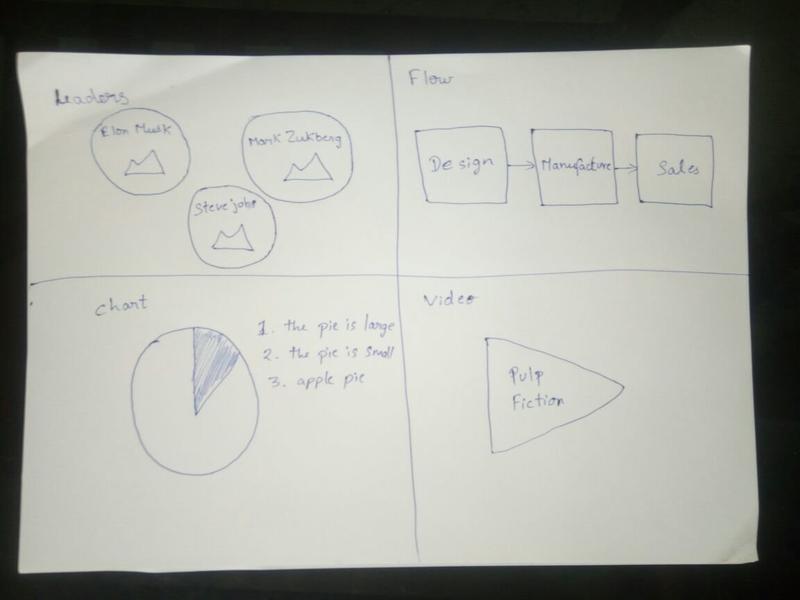 Leaders
Elon Musk
Mark Zukberg
Steve jobs
Flow
Design
Manufacture
Sales
Chart
1. the pie is large
2. the pie is small
3. apple pie
Video
Pulp
Fiction